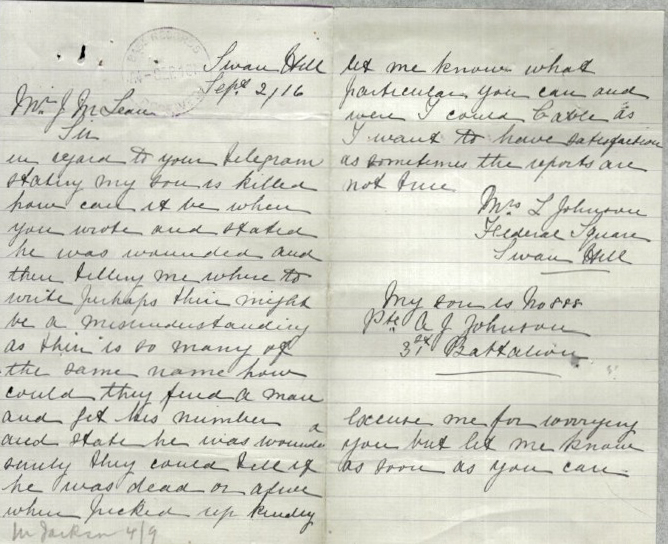 Swan Hill
Sept 2/16
Mr J McLean
Sir
in regard to your telegram
stating my son is killed
how can it be when
you wrote and stated
he was wounded and
then telling me where to
write perhaps their might
be a misunderstanding
as their is so many of
the same name how
could they find a man
and get his number
and state he was wounded
surely they could tell if
he was dead or alive
when picked up kindly
let me know what
particular you can and
were I could Cable as
I want to have satisfaction
as sometimes the reports are
not true
Mrs L Johnson
Federal Square
Swan Hill
My son is No 888
Pte A J Johnson
3 Battalion
Excuse me for worrying
you but let me know
as soon as you can
Jackson 4/9